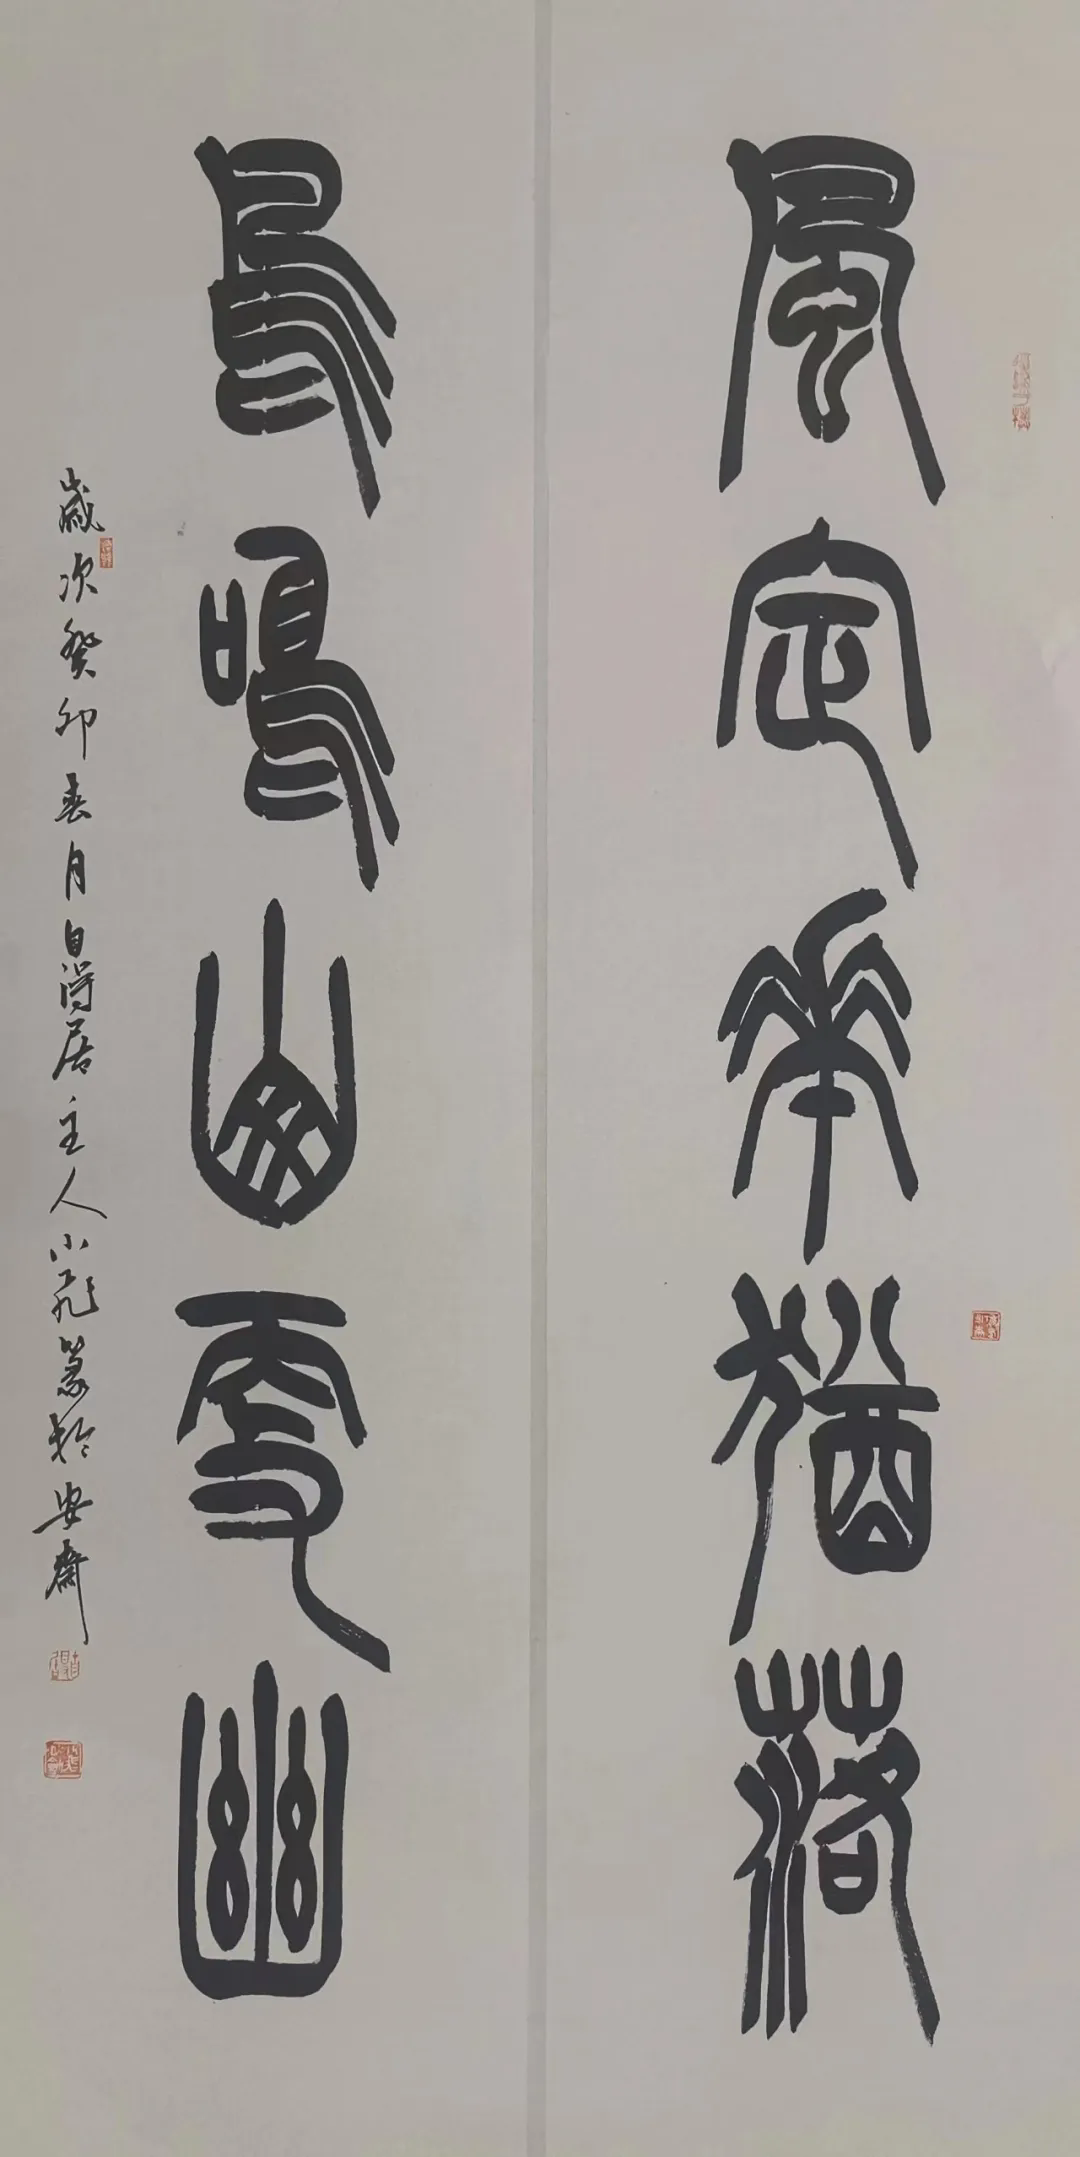 風定花猶落
鳥鳴山更幽
歲次癸卯春月自得居主人小飛篆於安齋